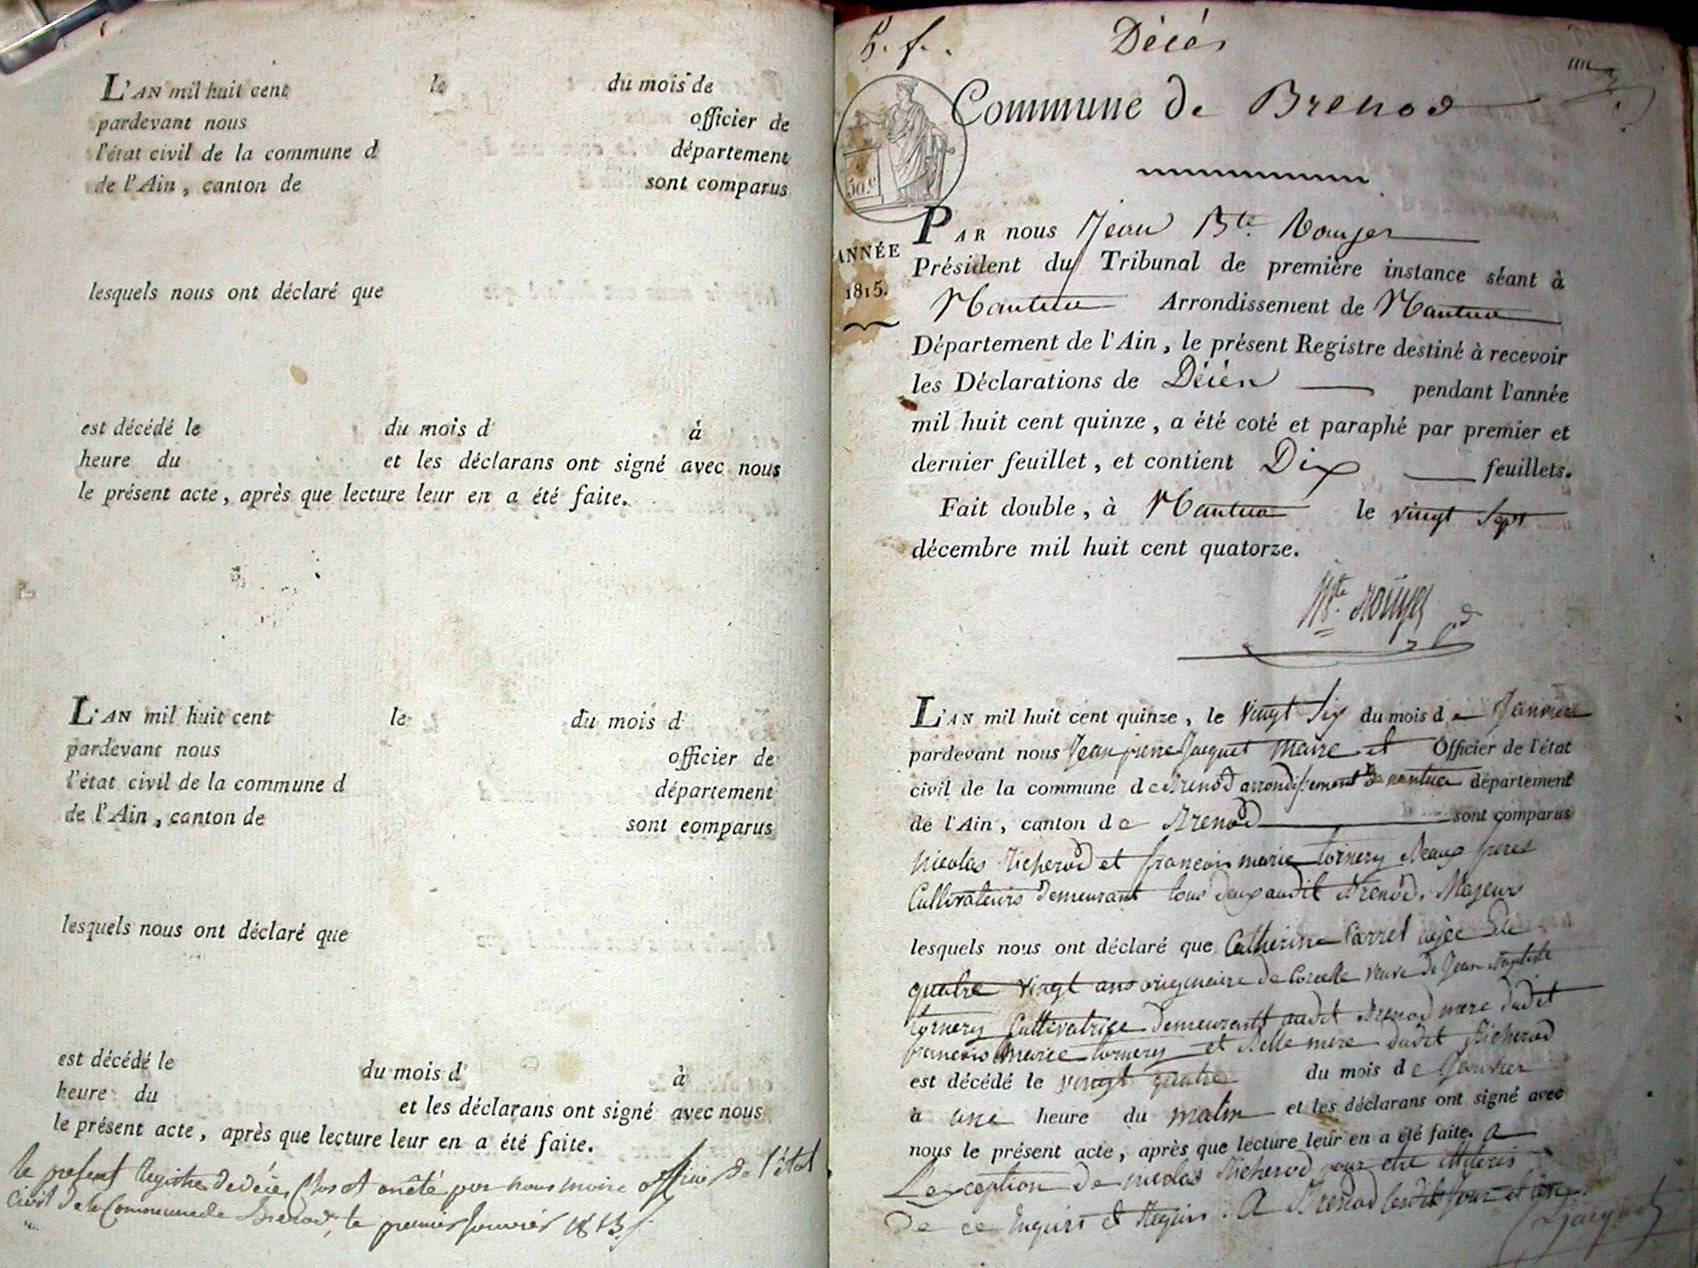 L'AN mil huit cent le du mois de
pardevant nous officier de
l'état civil de la commune d département
de l'Ain, canton de sont comparus
lesquels nous ont déclaré que
est décédé le du mois d à
heure du et les déclarans ont signé avec nous
le présent acte, après que lecture leur en a été faite.
L'AN mil huit cent le du mois d
pardevant nous officier de
l'état civil de la commune d département
de l'Ain, canton de sont comparus
lesquels nous ont déclaré que
est décédé le du mois d à
heure du et les déclarans ont signé avec nous
le présent acte, après que lecture leur en a été faite.
le present Registre de décès Clos et arrêté par nous maire officier de l'état
Civil de la Commune de Brenod, le premier Janvier
Décés
Commune de Brenod
50.c
ANNÉE
1815.
PAR nous Jean Bte Rouyer
Président du Tribunal de première instance séant à
Nantua Arrondissement de Nantua
Département de l'Ain, le présent Registre destiné à recevoir
les Déclarations de Décès pendant l'année
mil huit cent quinze, a été coté et paraphé par premier et
dernier feuillet, et contient Dix feuillets.
Fait double, à Nantua le vingt Sept
décembre mil huit cent quatorze.
Bte Rouyer
L'AN mil huit cent quinze, le vingt Six du mois de Janvier
pardevant nous Jean pierre Jacquet maire et Officier de l'état
civil de la commune de Brenod arrondissement de nantua département
de l'Ain, canton de Brenod sont comparus
nicolas Richerod et francois marie tornery Beaux freres
Cultivateurs demeurant tous deux audit Brenod. Majeurs
lesquels nous ont déclaré que Catherine Carrel agée de
quatre vingt ans originaire de Corcelle veuve de Jean Baptiste
tornery Cultivatrice demeurant audit Brenod mere dudit
francois Marie tornery et Belle mere dudit Richerod
est décédé le vingt quatre du mois de Janvier
à une heure du matin et les déclarans ont signé avec
nous le présent acte, après que lecture leur en a été faite. a
L'exception de nicolas Richerod pour etre illiteris
de ce Enquis et Requis. A Brenod lesdit jour et an
Jacquet